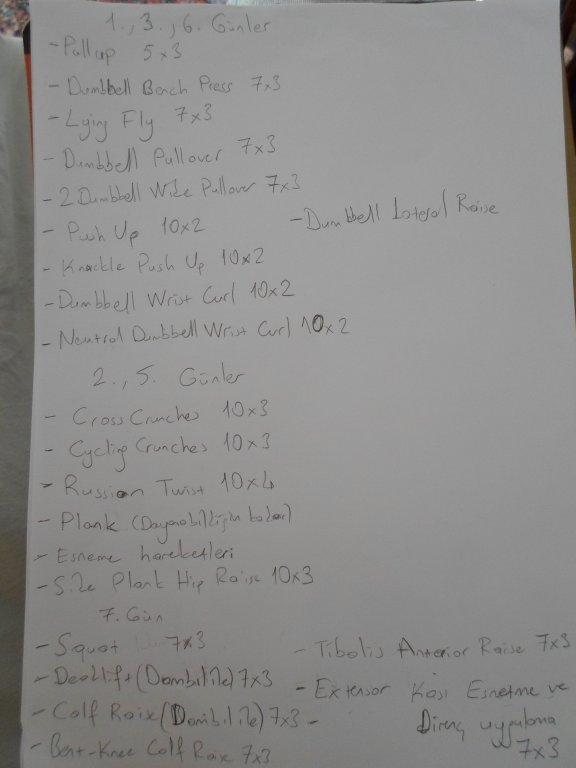 1., 3., 6. Günler
- Pull up 5x3
- Dumbbell Bench Press 7x3
- Lying Fly 7x3
- Dumbbell Pullover 7x3
- 2 Dumbbell Wide Pullover 7x3
- Push Up 10x2
- Dumbbell Lateral Raise
- Knuckle Push Up 10x2
- Dumbbell Wrist Curl 10x2
- Neutral Dumbbell Wrist Curl 10x2
2., 5. Günler
- Cross Crunches 10x3
- Cycling Crunches 10x3
- Russian Twist 10x4
- Plank (Dayanabildiğin kadar)
- Esneme hareketleri
- Side Plank Hip Raise 10x3
7. Gün
- Squat 7x3
- Deadlift (Dambıl ile) 7x3
- Calf Raise (Dambıl ile) 7x3 -
- Bent-Knee Calf Raise 7x3
- Tibialis Anterior Raise 7x3
- Extensor Kası Esnetme ve
Direnç uygulama
7x3